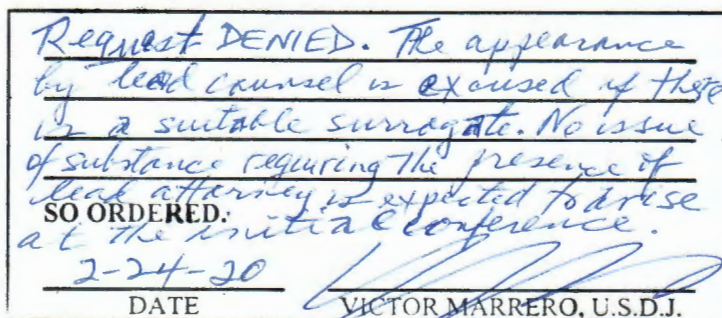 Request DENIED. The appearance
by lead counsel is excused if there
is a suitable surrogate. No issue
of substance requiring the presence of
lead attorney is expected to arise
SO ORDERED.
at the initial conference.
2-24-20
DATE VICTOR MARRERO, U.S.D.J.